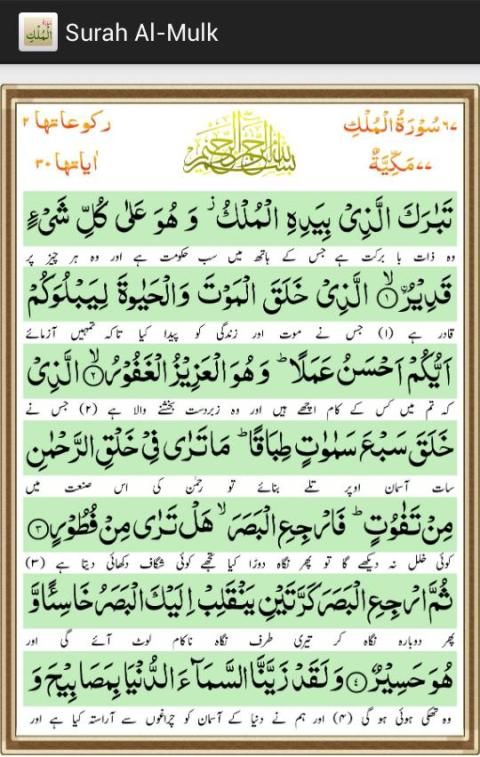 Surah Al-Mulk
٦٧ سُوْرَةُ الْمُلْكِ
مَكِّيَّةٌ ٧٧
رکوعاتها ٢
اٰیاتها ٣٠
تَبٰرَكَ الَّذِیْ بِیَدِهِ الْمُلْكُ ز وَ هُوَ عَلٰی كُلِّ شَیْءٍ
وہ ذات با برکت ہے جس کے ہاتھ میں سب حکومت ہے اور وہ ہر چیز پر
قَدِیْرُ ۙ﴿۱﴾ الَّذِیْ خَلَقَ الْمَوْتَ وَالْحَیٰوةَ لِیَبْلُوَكُمْ
قادر ہے (۱) جس نے موت اور زندگی کو پیدا کیا تاکہ تمہیں آزمائے
اَیُّكُمْ اَحْسَنُ عَمَلًا ؕ وَ هُوَ الْعَزِیْزُ الْغَفُوْرُ ۙ﴿۲﴾ الَّذِیْ
کہ تم میں کس کے کام اچھے ہیں اور وہ زبردست بخشنے والا ہے (۲) جس نے
خَلَقَ سَبْعَ سَمٰوٰتٍ طِبَاقًا ؕ مَا تَرٰی فِیْ خَلْقِ الرَّحْمٰنِ
سات آسمان اوپر تلے بنائے تو رحمٰن کی اس صنعت میں
مِنْ تَفٰوُتٍ ؕ فَارْجِعِ الْبَصَرَ ۙ هَلْ تَرٰی مِنْ فُطُوْرٍ ﴿۳﴾
کوئی خلل نہ دیکھے گا تو پھر نگاہ دوڑا کیا تجھے کوئی شگاف دکھائی دیتا ہے (۳)
ثُمَّ ارْجِعِ الْبَصَرَ كَرَّتَیْنِ یَنْقَلِبْ اِلَیْكَ الْبَصَرُ خَاسِئًا وَّ
پھر دوبارہ نگاہ کر تیری طرف نگاہ ناکام لوٹ آئے گی اور
هُوَ حَسِیْرٌ ﴿۴﴾ وَ لَقَدْ زَیَّنَّا السَّمَآءَ الدُّنْیَا بِمَصَابِیْحَ وَ
وہ تھکی ہوئی ہو گی (۴) اور ہم نے دنیا کے آسمان کو چراغوں سے آراستہ کیا ہے اور